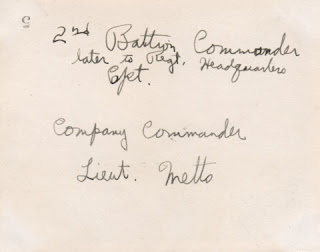 5
2nd Battion Commander
later to Regt. Headquarters
Cpt.
Company Commander
Lieut. Metts